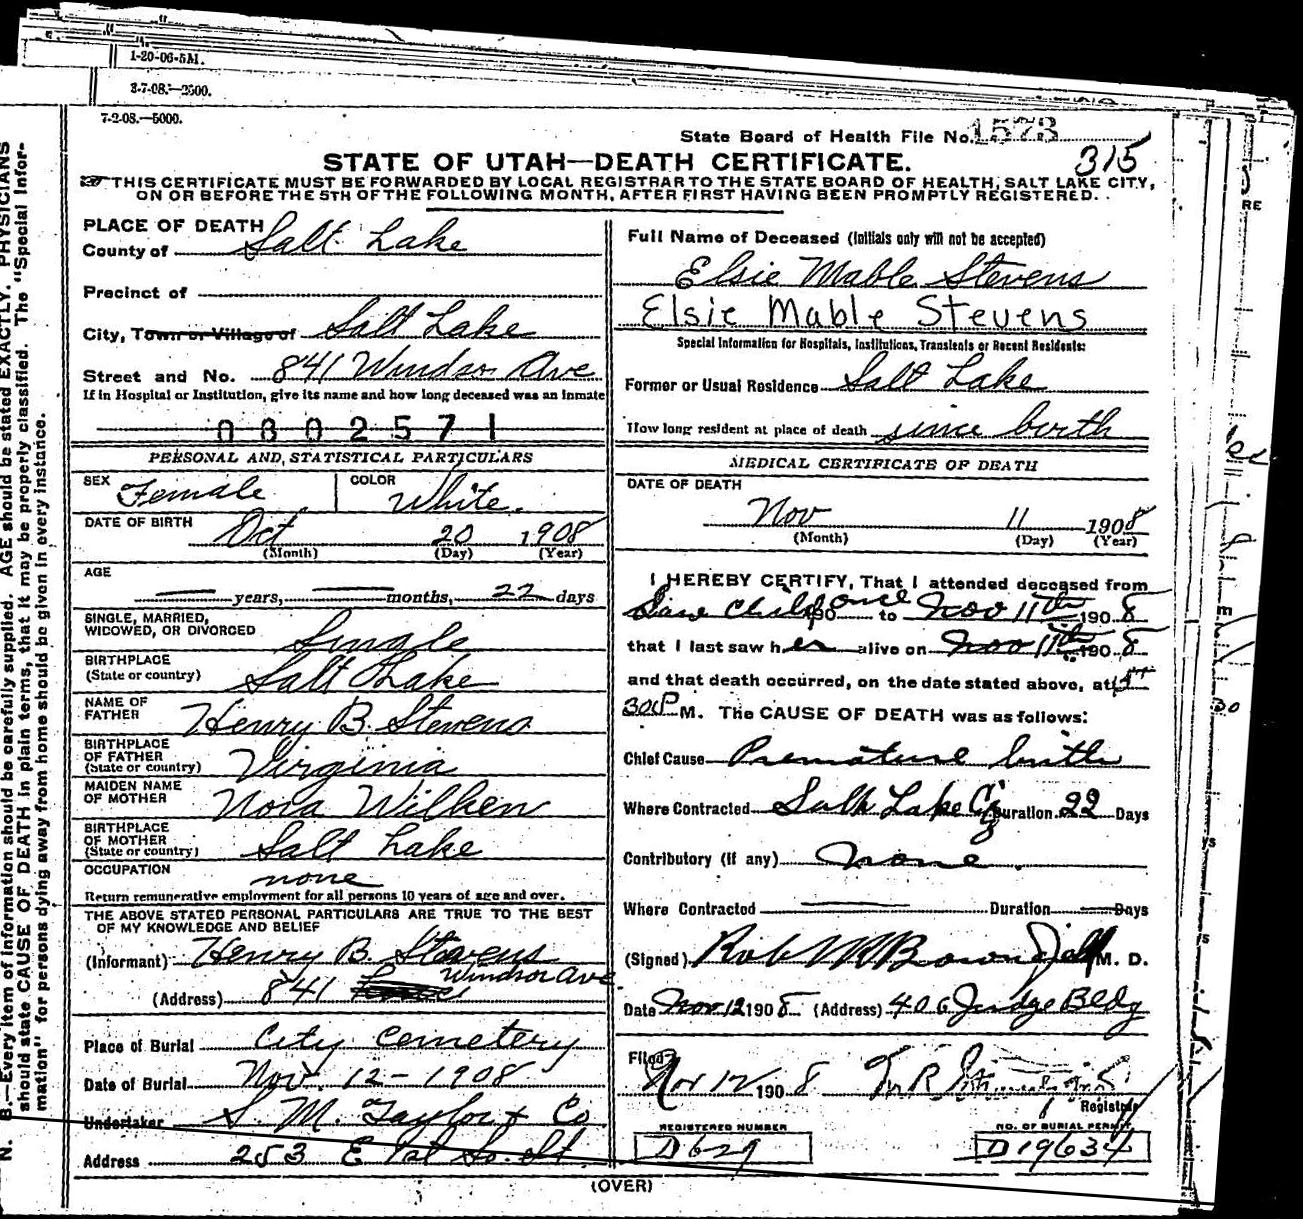 1-20-06-5M.
3-7-08.—2500.
7-2-08.—5000.
State Board of Health File No. 1573
315
STATE OF UTAH—DEATH CERTIFICATE.
THIS CERTIFICATE MUST BE FORWARDED BY LOCAL REGISTRAR TO THE STATE BOARD OF HEALTH, SALT LAKE CITY,
ON OR BEFORE THE 5TH OF THE FOLLOWING MONTH, AFTER FIRST HAVING BEEN PROMPTLY REGISTERED.
PLACE OF DEATH
County of Salt Lake
Precinct of
City, Town or Village of Salt Lake
Street and No. 841 Windsor Ave
If in Hospital or Institution, give its name and how long deceased was an inmate
0802571
PERSONAL AND STATISTICAL PARTICULARS
SEX Female COLOR White.
DATE OF BIRTH Oct 20 1908
(Month) (Day) (Year)
AGE
— years, — months, 22 days
SINGLE, MARRIED,
WIDOWED, OR DIVORCED Single
BIRTHPLACE
(State or country) Salt Lake
NAME OF
FATHER Henry B. Stevens
BIRTHPLACE
OF FATHER
(State or country) Virginia
MAIDEN NAME
OF MOTHER Nora Wilken
BIRTHPLACE
OF MOTHER
(State or country) Salt Lake
OCCUPATION none
Return remunerative employment for all persons 10 years of age and over.
THE ABOVE STATED PERSONAL PARTICULARS ARE TRUE TO THE BEST
OF MY KNOWLEDGE AND BELIEF
(Informant) Henry B. Stevens
(Address) 841 Windsor Ave
Place of Burial City Cemetery
Date of Burial Nov. 12 - 1908
Undertaker S. M. Taylor & Co
Address 253 E 1st So. St.
Full Name of Deceased (Initials only will not be accepted)
Elsie Mable Stevens
Elsie Mable Stevens
Special Information for Hospitals, Institutions, Transients or Recent Residents:
Former or Usual Residence Salt Lake
How long resident at place of death since birth
MEDICAL CERTIFICATE OF DEATH
DATE OF DEATH
Nov 11 1908
(Month) (Day) (Year)
I HEREBY CERTIFY, That I attended deceased from
Saw child once 190 to Nov 11th 1908
that I last saw her alive on Nov 11th 1908
and that death occurred, on the date stated above, at
30 P M. The CAUSE OF DEATH was as follows:
Chief Cause Premature birth
Where Contracted Salt Lake City Duration 22 Days
Contributory (if any) none.
Where Contracted — Duration — Days
(Signed) M. D.
Date Nov 12 1908 (Address) 406 Judge Bldg
Filed Nov 12 1908
Registrar
REGISTERED NUMBER NO. OF BURIAL PERMIT
D629 D19634
(OVER)
N. B.—Every item of information should be carefully supplied. AGE should be stated EXACTLY. PHYSICIANS
should state CAUSE OF DEATH in plain terms, that it may be properly classified. The "Special Infor-
mation" for persons dying away from home should be given in every instance.